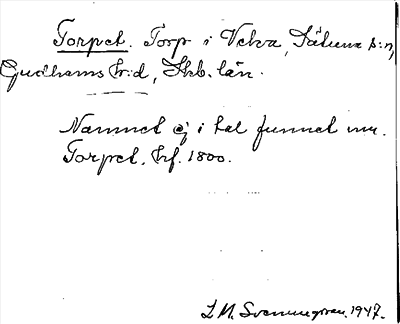 Torpet. Torp i Velva, Säluna s:n,
Gudhems hr:d, Skb. län.
Namnet ej i tal funnet nu.
Torpet, hf. 1800.
L M. Svenungsson. 1947.